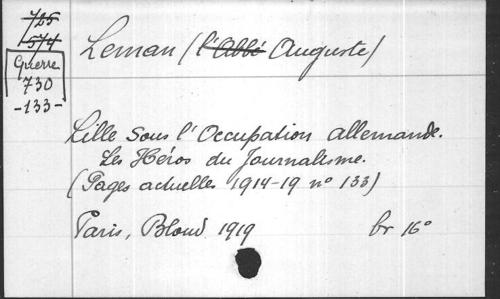 725
574
Guerre
730
-133-
Leman (l'Abbé Auguste)
Lille sous l'Occupation allemande.
Les Héros du Journalisme.
(Pages actuelles 1914-19 n° 133)
Paris, Bloud 1919 br 16°